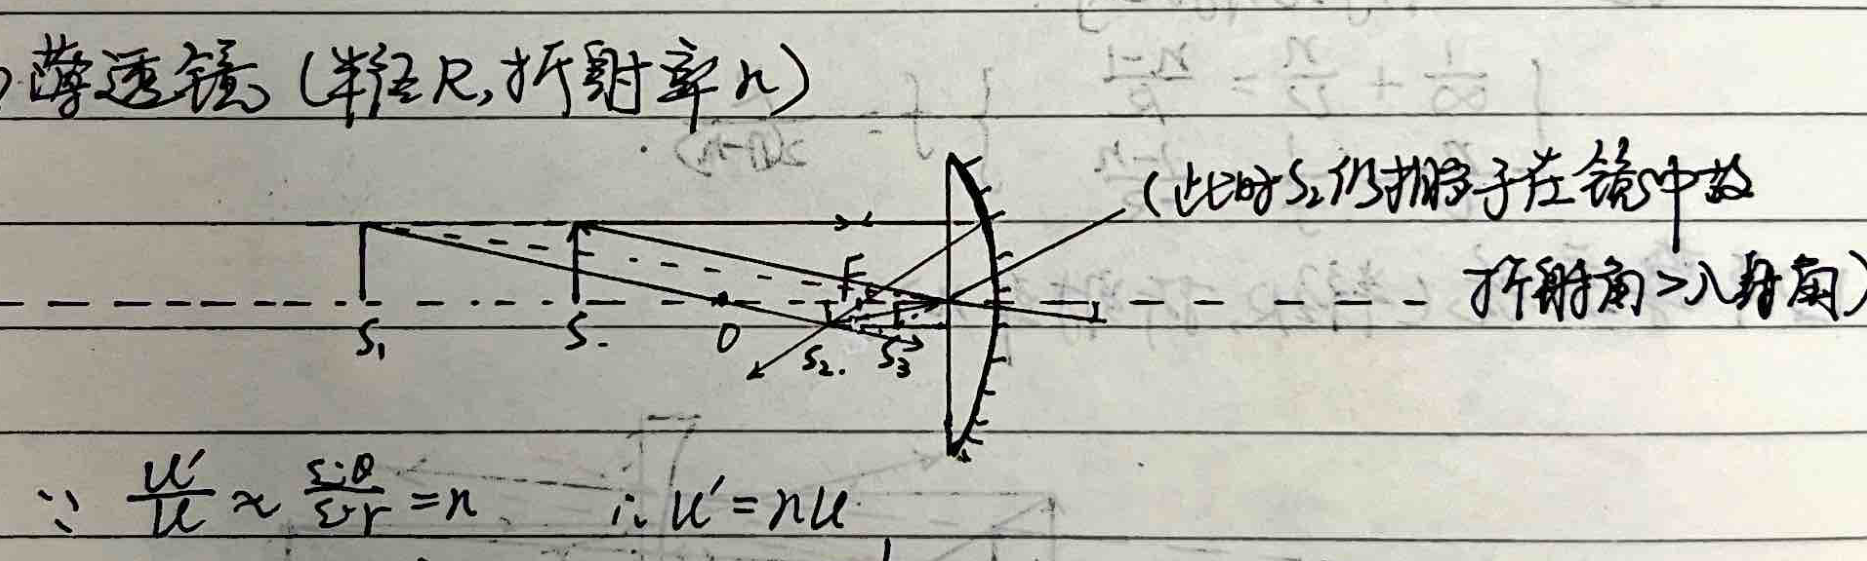 薄透镜(半径R,折射率n)
(此时S₂仍相当于在镜中故
折射角>入射角)
F
S₁ S. O S₂. S₃
∵ u′/u ≈ sinθ/sinr = n ∴ u′=nu.